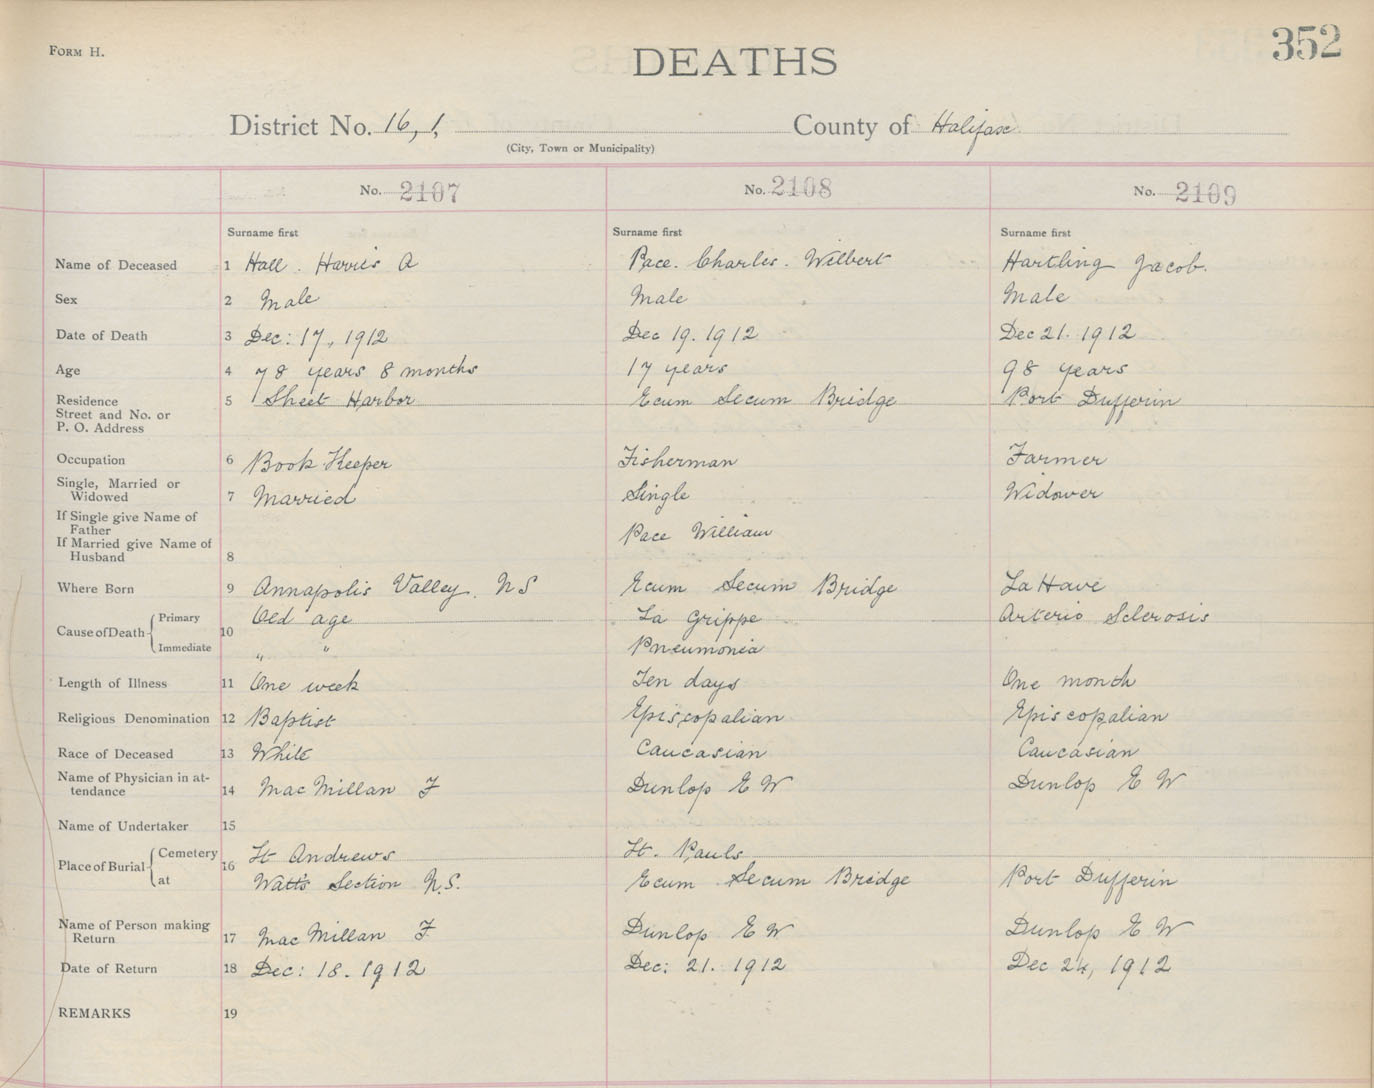 FORM H.
DEATHS
352
District No. 16, 1, County of Halifax
(City, Town or Municipality)
No. 2107 No. 2108 No. 2109
Surname first Surname first Surname first
Name of Deceased 1 Hall. Harris A Pace. Charles. Wilbert Hartling Jacob.
Sex 2 Male Male Male
Date of Death 3 Dec: 17, 1912 Dec 19. 1912 Dec 21. 1912
Age 4 78 years 8 months 17 years 98 years
Residence 5 Sheet Harbor Ecum Secum Bridge Port Dufferin
Street and No. or
P. O. Address
Occupation 6 Book Keeper Fisherman Farmer
Single, Married or
Widowed 7 Married Single Widower
If Single give Name of
Father Pace William
If Married give Name of
Husband 8
Where Born 9 Annapolis Valley. NS Ecum Secum Bridge La Have
Cause of Death 10 Primary Old age La Grippe Arterio Sclerosis
Immediate " " Pneumonia
Length of Illness 11 One week Ten days One month
Religious Denomination 12 Baptist Episcopalian Episcopalian
Race of Deceased 13 White Caucasian Caucasian
Name of Physician in at-
tendance 14 MacMillan F Dunlop E W Dunlop E W
Name of Undertaker 15
Place of Burial 16 Cemetery St Andrews St. Pauls
at Watt's Section N.S. Ecum Secum Bridge Port Dufferin
Name of Person making
Return 17 MacMillan F Dunlop E W Dunlop E W
Date of Return 18 Dec: 18. 1912 Dec: 21. 1912 Dec 24, 1912
REMARKS 19